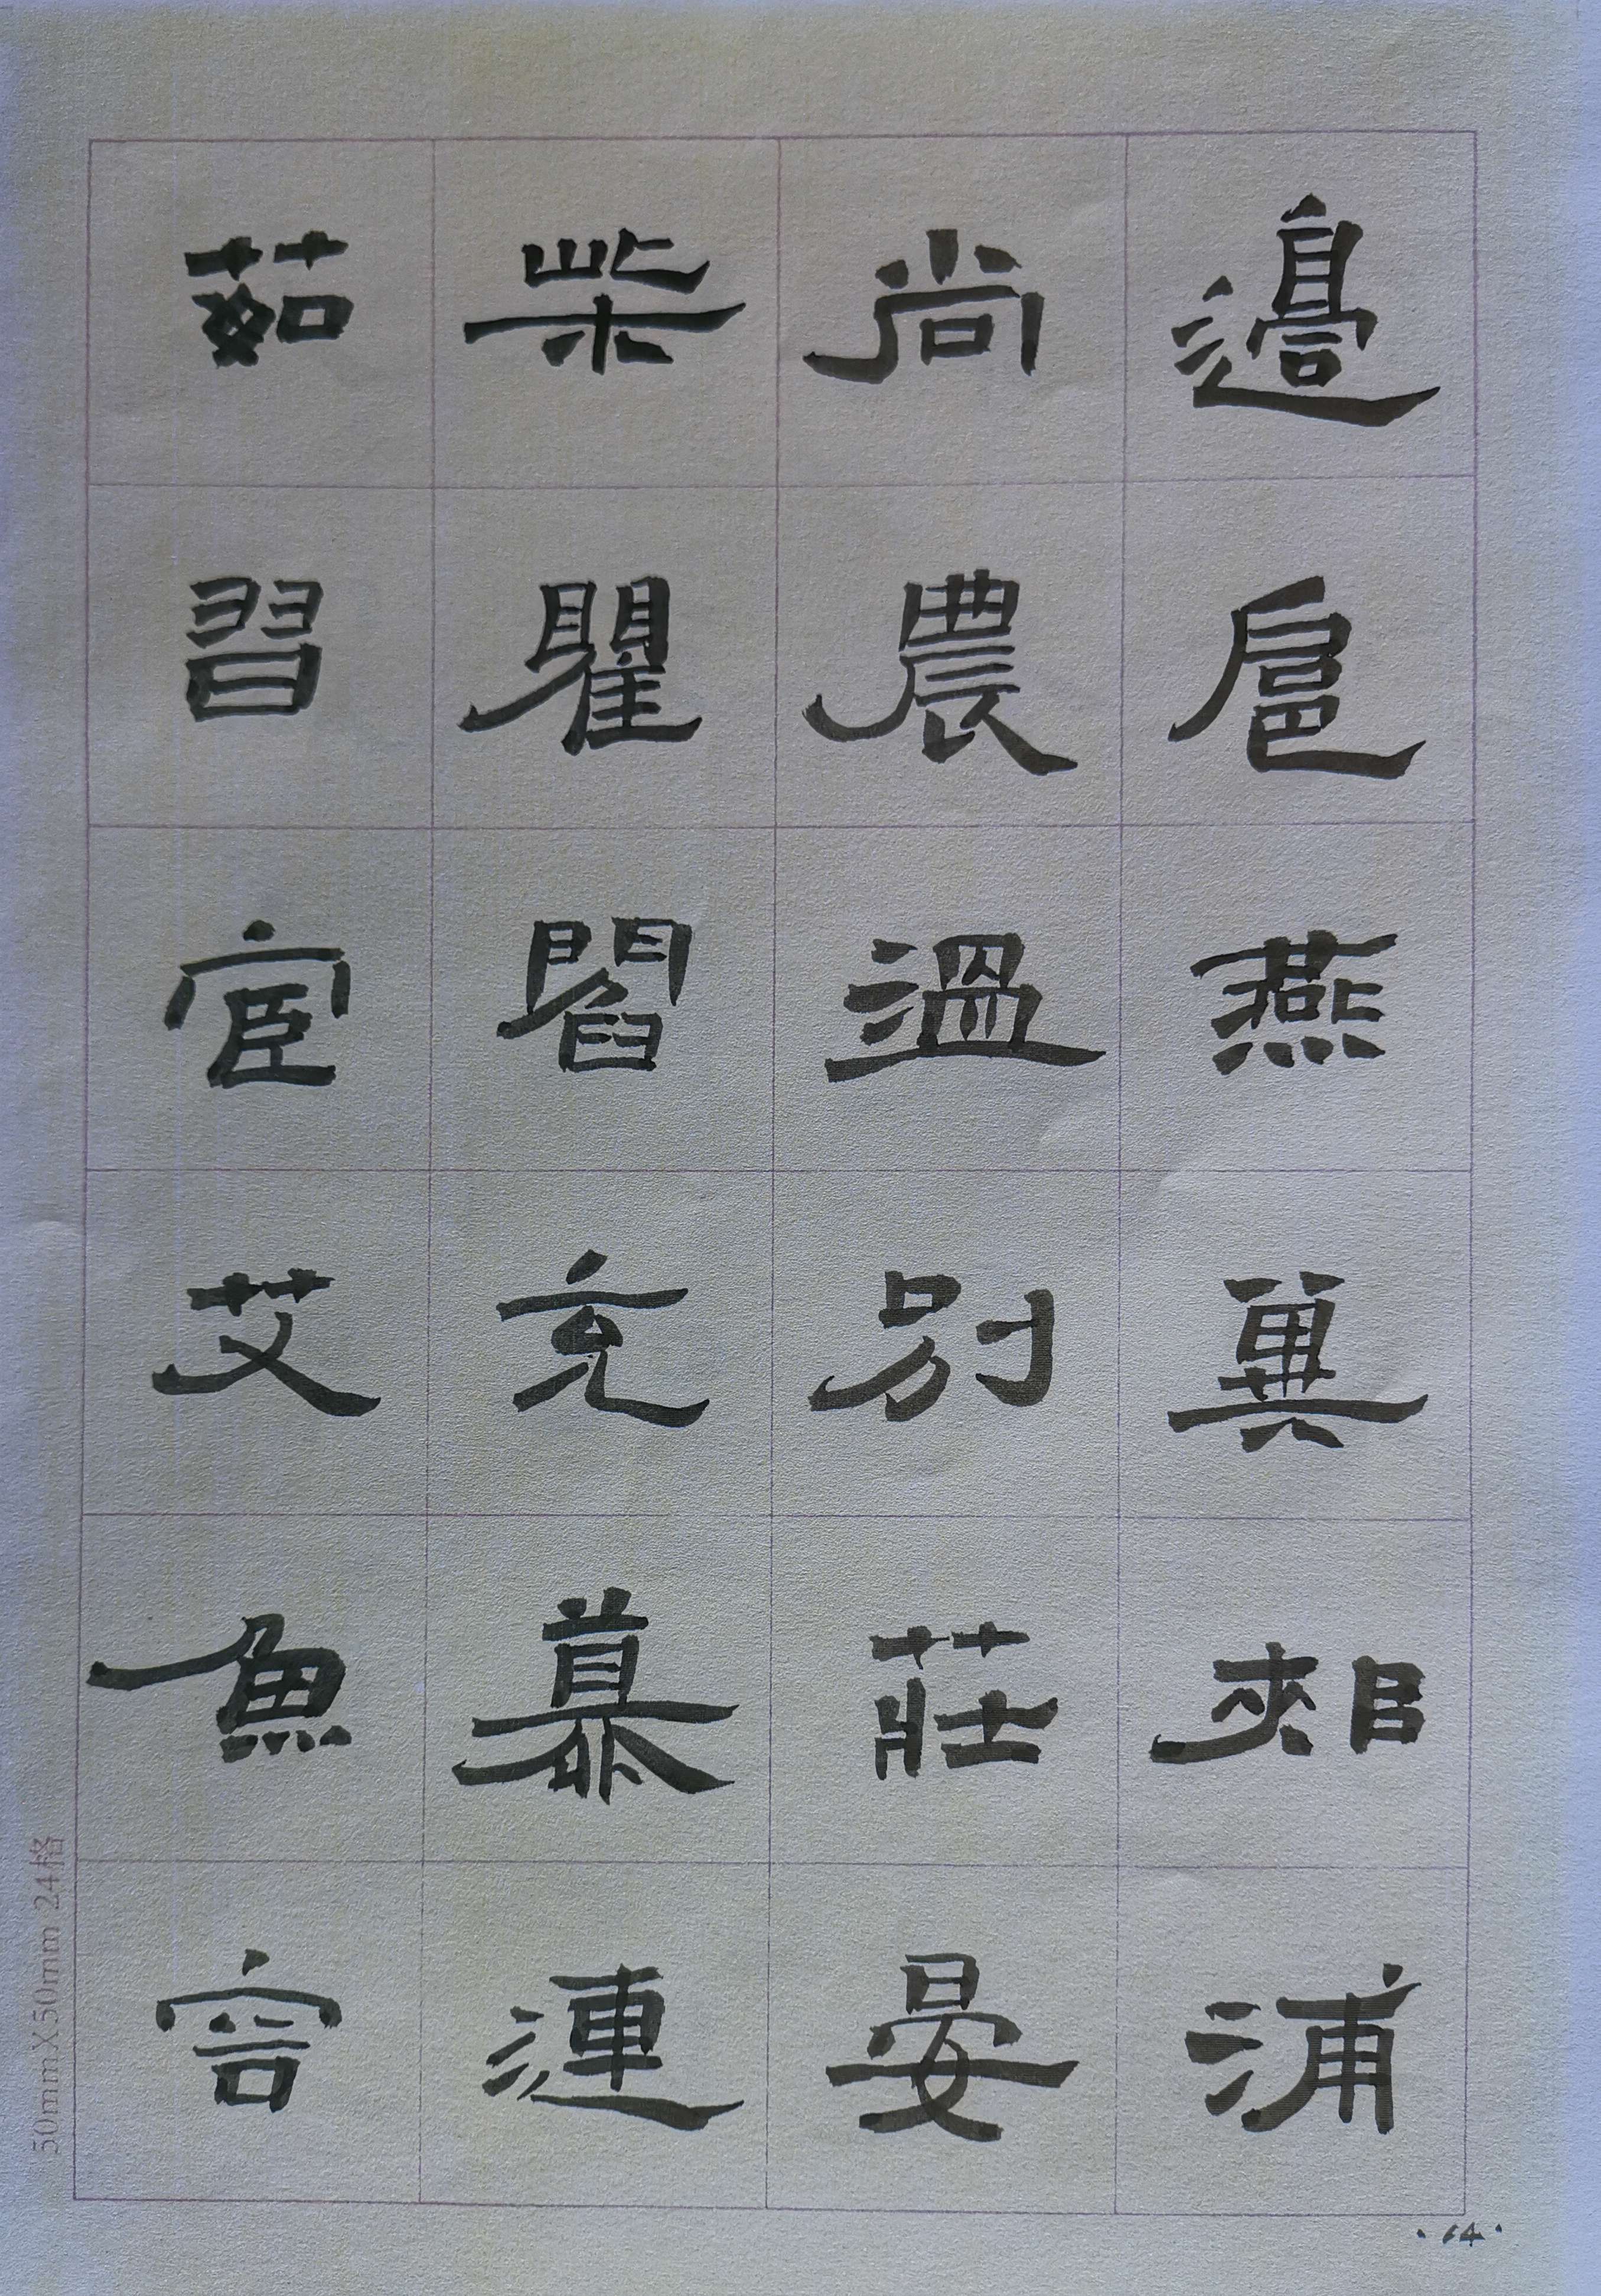 邊扈燕冀郟浦
尚農溫別莊晏
柴瞿閻充慕連
茹習宦艾魚容
·64·
50mmX50mm 24格